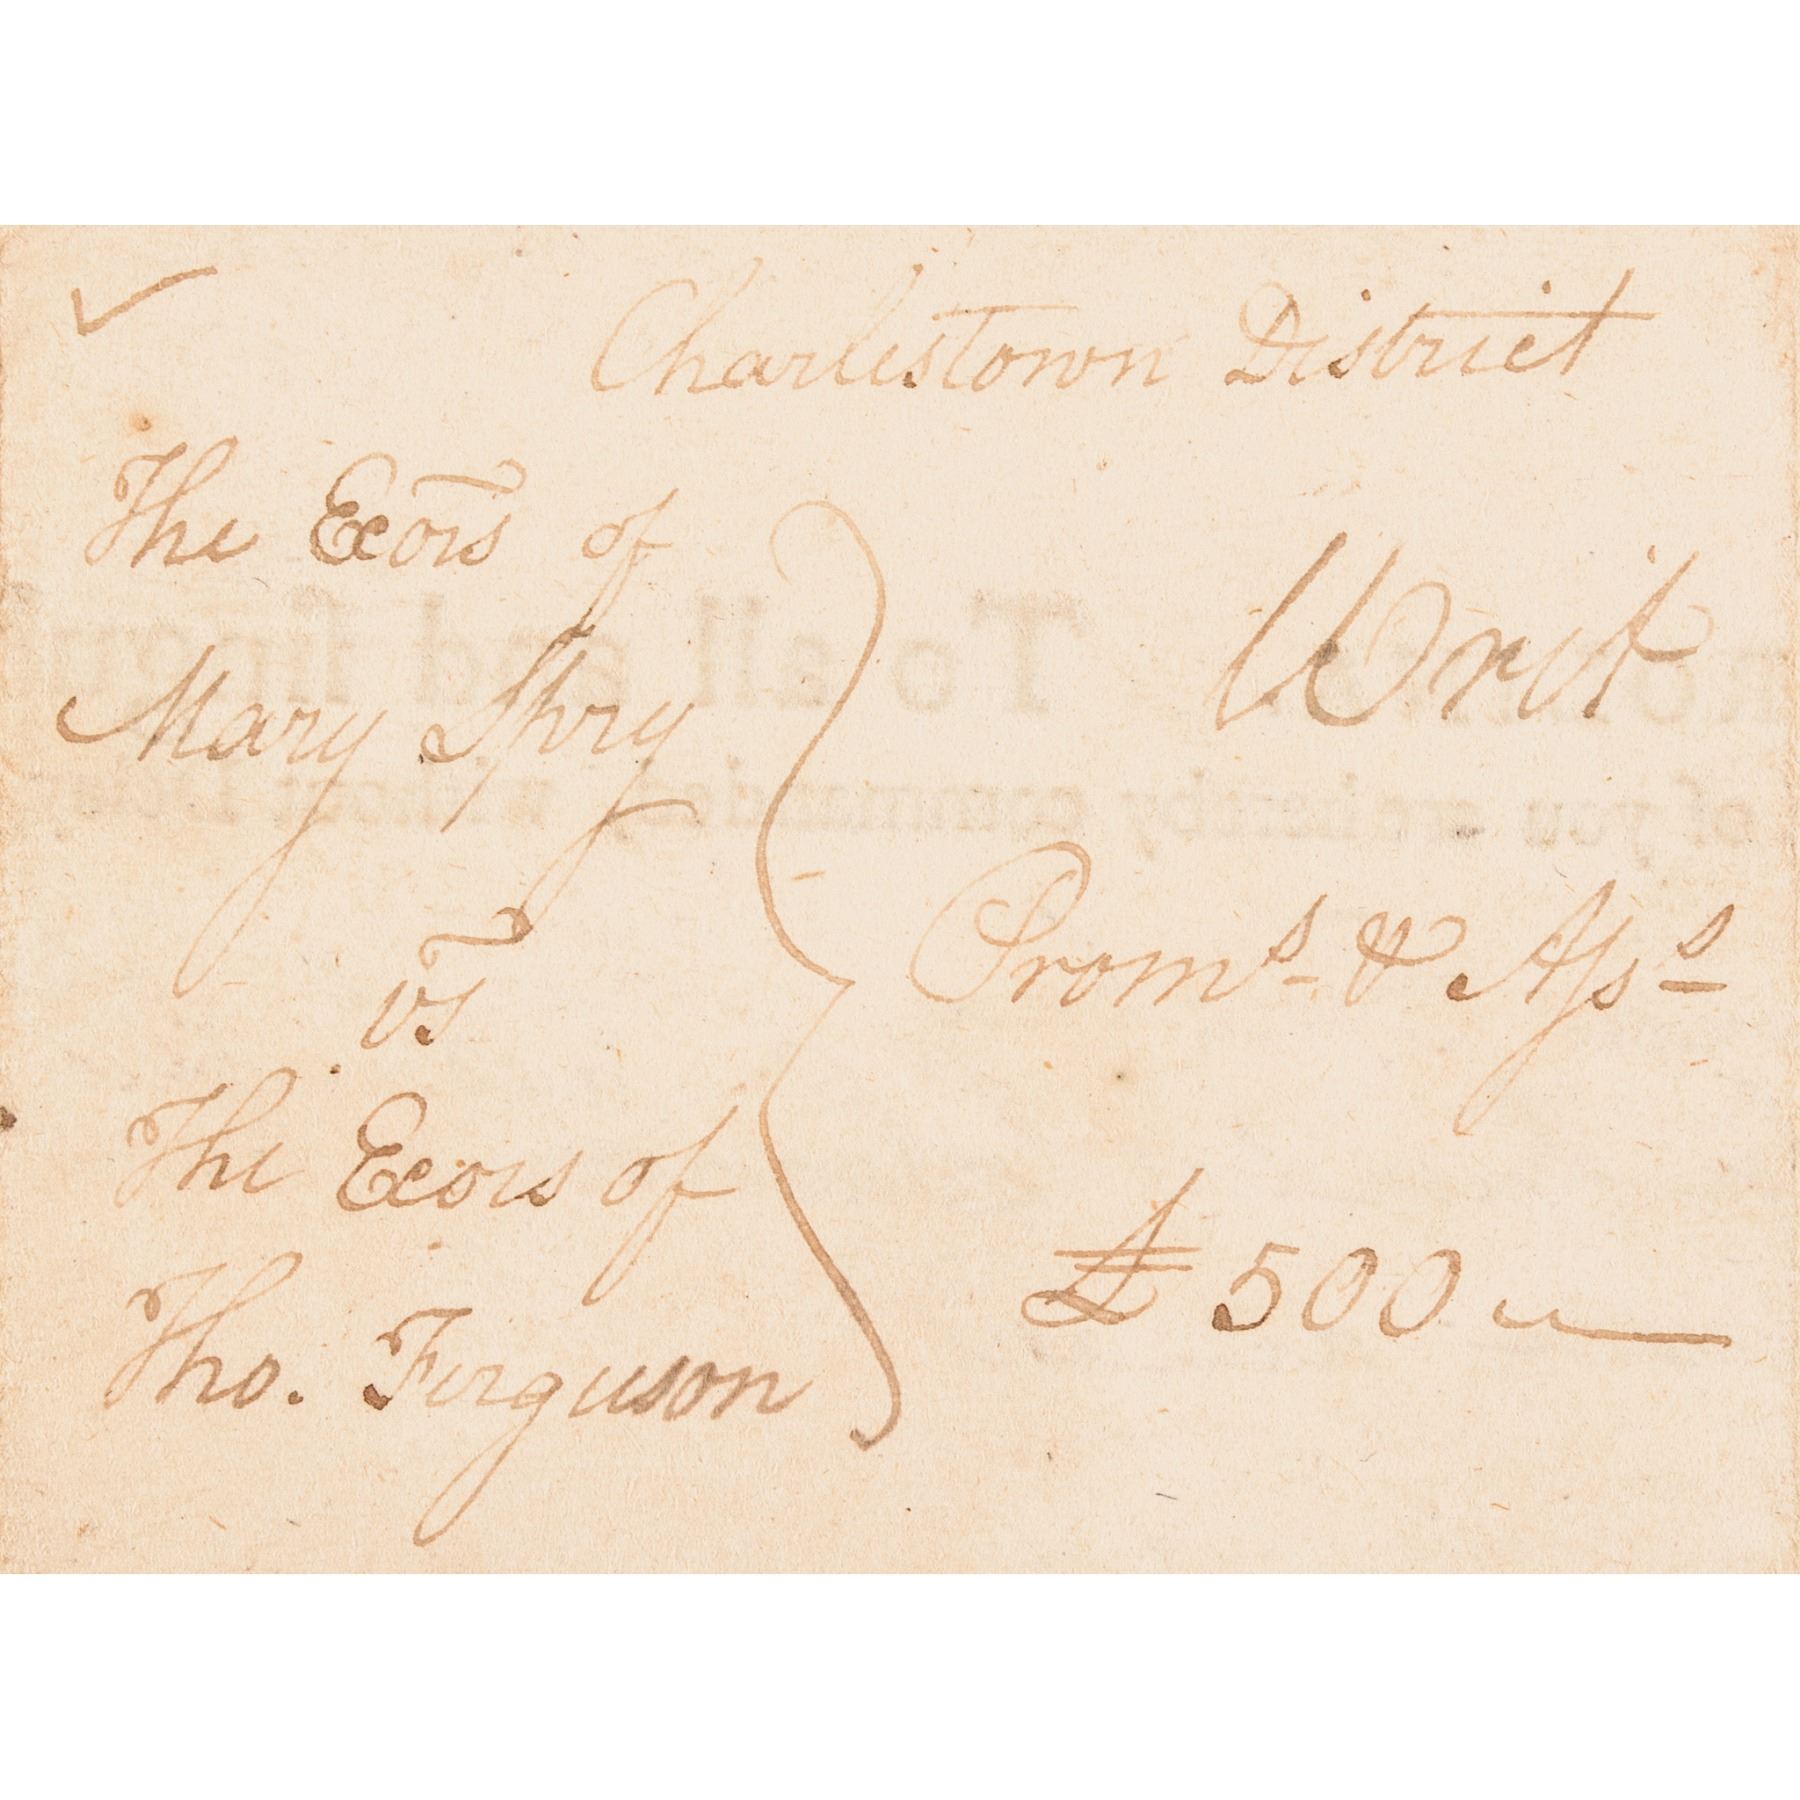 Charlestown District
The Exors of
Mary Spry
vs
The Exors of
Tho. Ferguson
Writ
Proms & Asss
£ 500